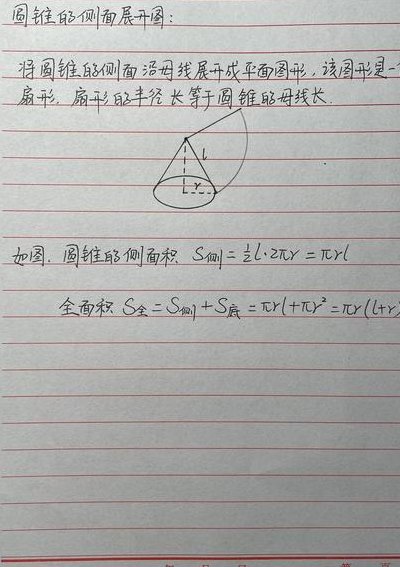 圆锥的侧面展开图：
将圆锥的侧面沿母线展开成平面图形，该图形是一
扇形，扇形的半径长等于圆锥的母线长.
l
r
如图，圆锥的侧面积 S侧=½l·2πr=πrl
全面积 S全=S侧+S底=πrl+πr²=πr(l+r)